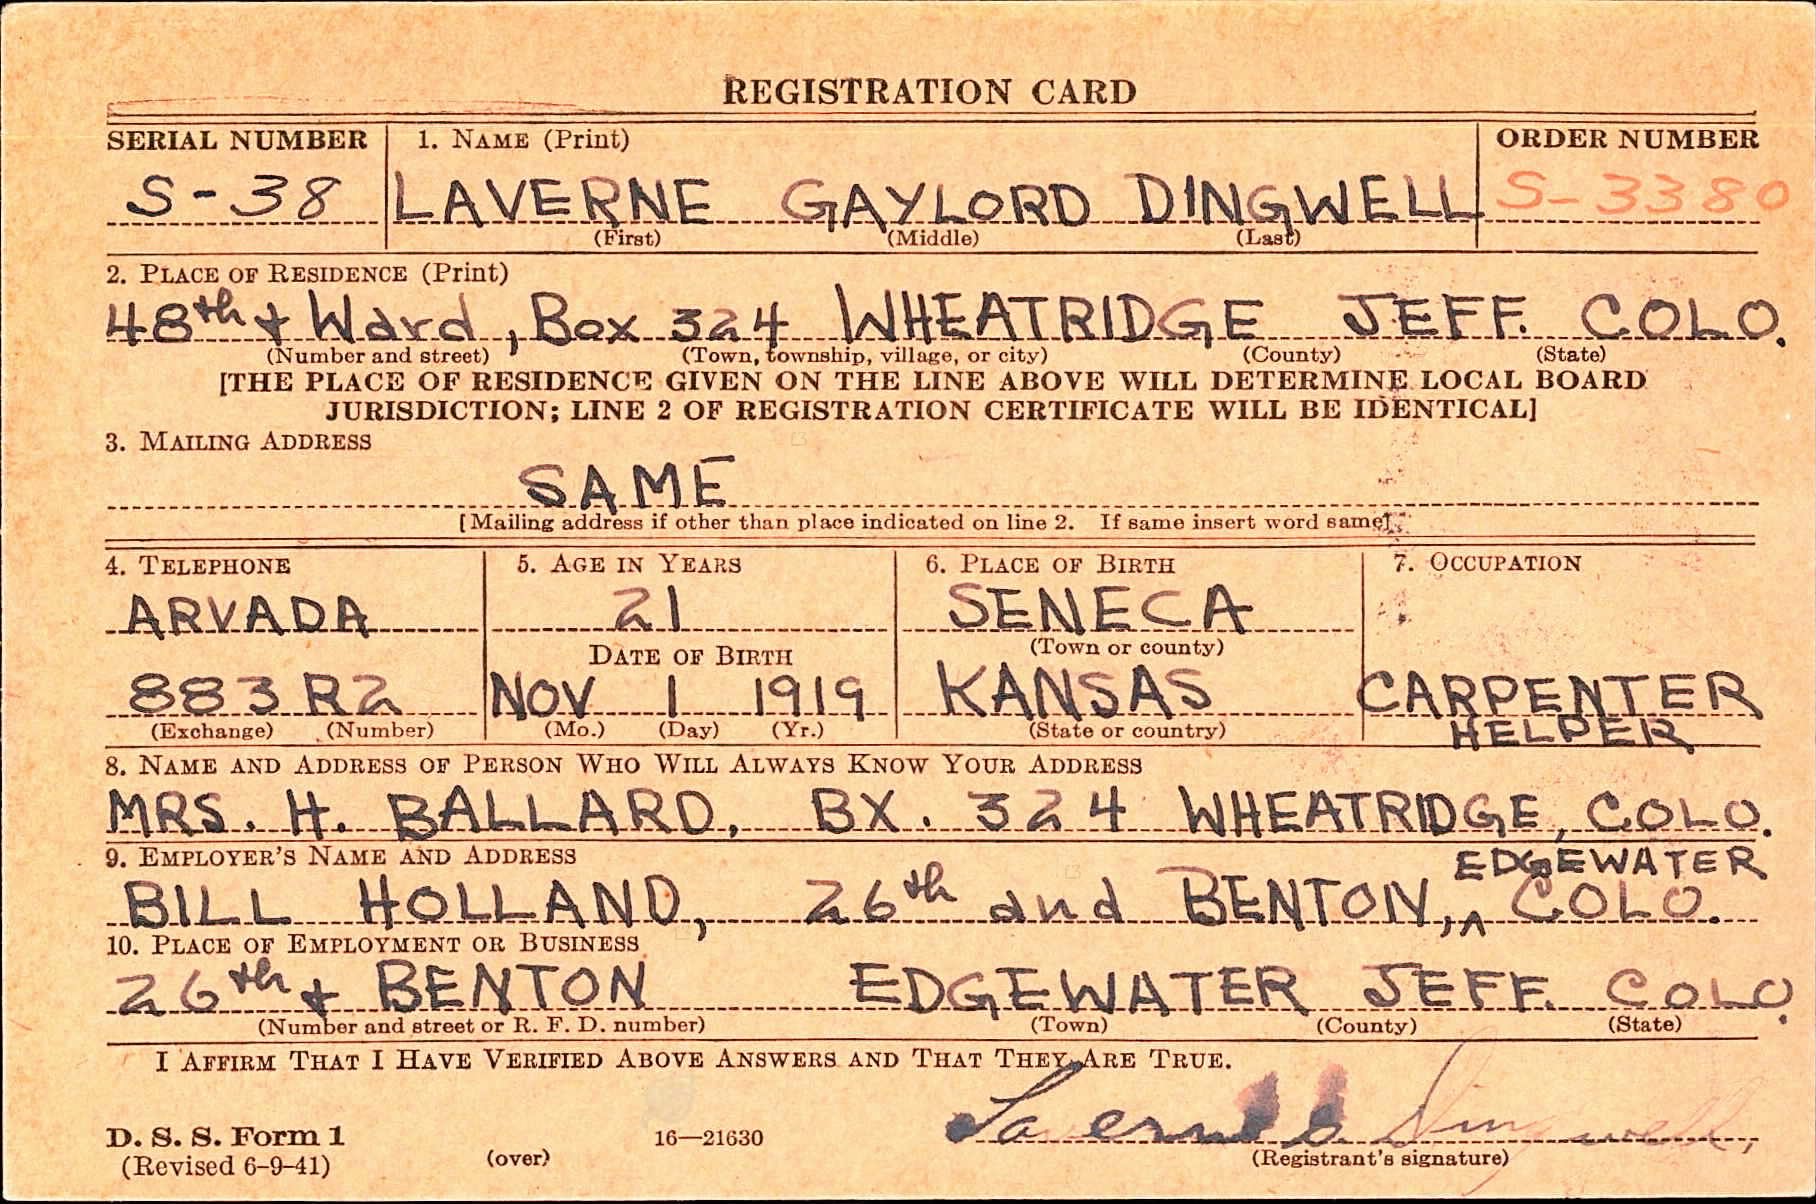 REGISTRATION CARD
SERIAL NUMBER 1. NAME (Print) ORDER NUMBER
S-38 LAVERNE GAYLORD DINGWELL S-3380
(First) (Middle) (Last)
2. PLACE OF RESIDENCE (Print)
48th + Ward, Box 324 WHEATRIDGE JEFF. COLO.
(Number and street) (Town, township, village, or city) (County) (State)
[THE PLACE OF RESIDENCE GIVEN ON THE LINE ABOVE WILL DETERMINE LOCAL BOARD
JURISDICTION; LINE 2 OF REGISTRATION CERTIFICATE WILL BE IDENTICAL]
3. MAILING ADDRESS
SAME
[Mailing address if other than place indicated on line 2. If same insert word same]
4. TELEPHONE 5. AGE IN YEARS 6. PLACE OF BIRTH 7. OCCUPATION
ARVADA 21 SENECA
DATE OF BIRTH (Town or county)
883 R2 NOV 1 1919 KANSAS CARPENTER
(Exchange) (Number) (Mo.) (Day) (Yr.) (State or country) HELPER
8. NAME AND ADDRESS OF PERSON WHO WILL ALWAYS KNOW YOUR ADDRESS
MRS. H. BALLARD, BX. 324 WHEATRIDGE, COLO.
9. EMPLOYER'S NAME AND ADDRESS EDGEWATER
BILL HOLLAND, 26th and BENTON, ^ COLO.
10. PLACE OF EMPLOYMENT OR BUSINESS
26th + BENTON EDGEWATER JEFF. COLO.
(Number and street or R. F. D. number) (Town) (County) (State)
I AFFIRM THAT I HAVE VERIFIED ABOVE ANSWERS AND THAT THEY ARE TRUE.
Laverne G. Dingwell
D. S. S. Form 1 16—21630
(Revised 6-9-41) (over) (Registrant's signature)